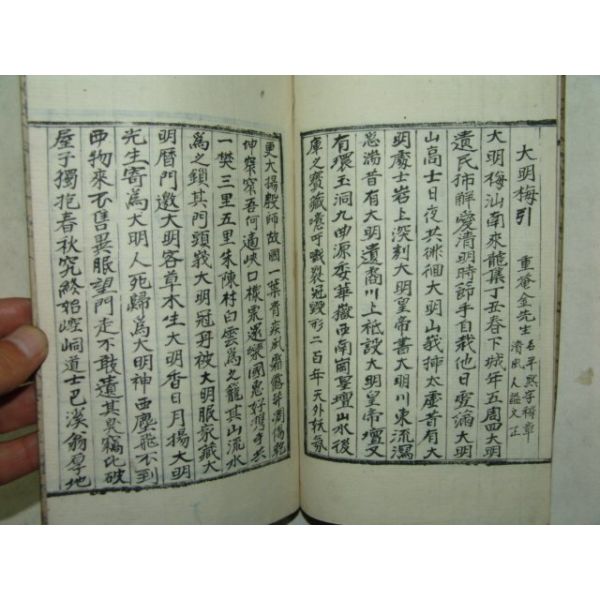 大明梅引
重菴金先生名平默字穉章清風人謚文正
大明梅汕南來龍集丁丑春下城年五周四大明
遺民柿鮮愛清明時節手自栽他日爱滿大明
山高士日夜共徘徊大明山我掃太虛昔有大
明處士岩上深刻大明皇帝書大明川東流瀉
怨滿昔有大明遺裔川上祗設大明皇帝壇又
有環玉洞九曲源委華嶽西南面皇壇山水後
庫之寶藏噫呼戲裂冠毀形二百年天外妖氛
更大揚殷師故國一葉青疾風霜露年凋傷乾
坤窣窣吾何適峽口樣栗還
一樊三里五里朱陳村白雲爲之籠其山流水
爲之鎖其門頭戴大明冠身被大明服家藏大
明曆門邀大明客草木生大明香日月揚大明
先生寄爲大明人死歸爲大明神西塵飛不到
西物來不售異服望門走不敢遺其臭竊比破
屋子獨抱春秋究終始崆峒道士巴溪翁學地